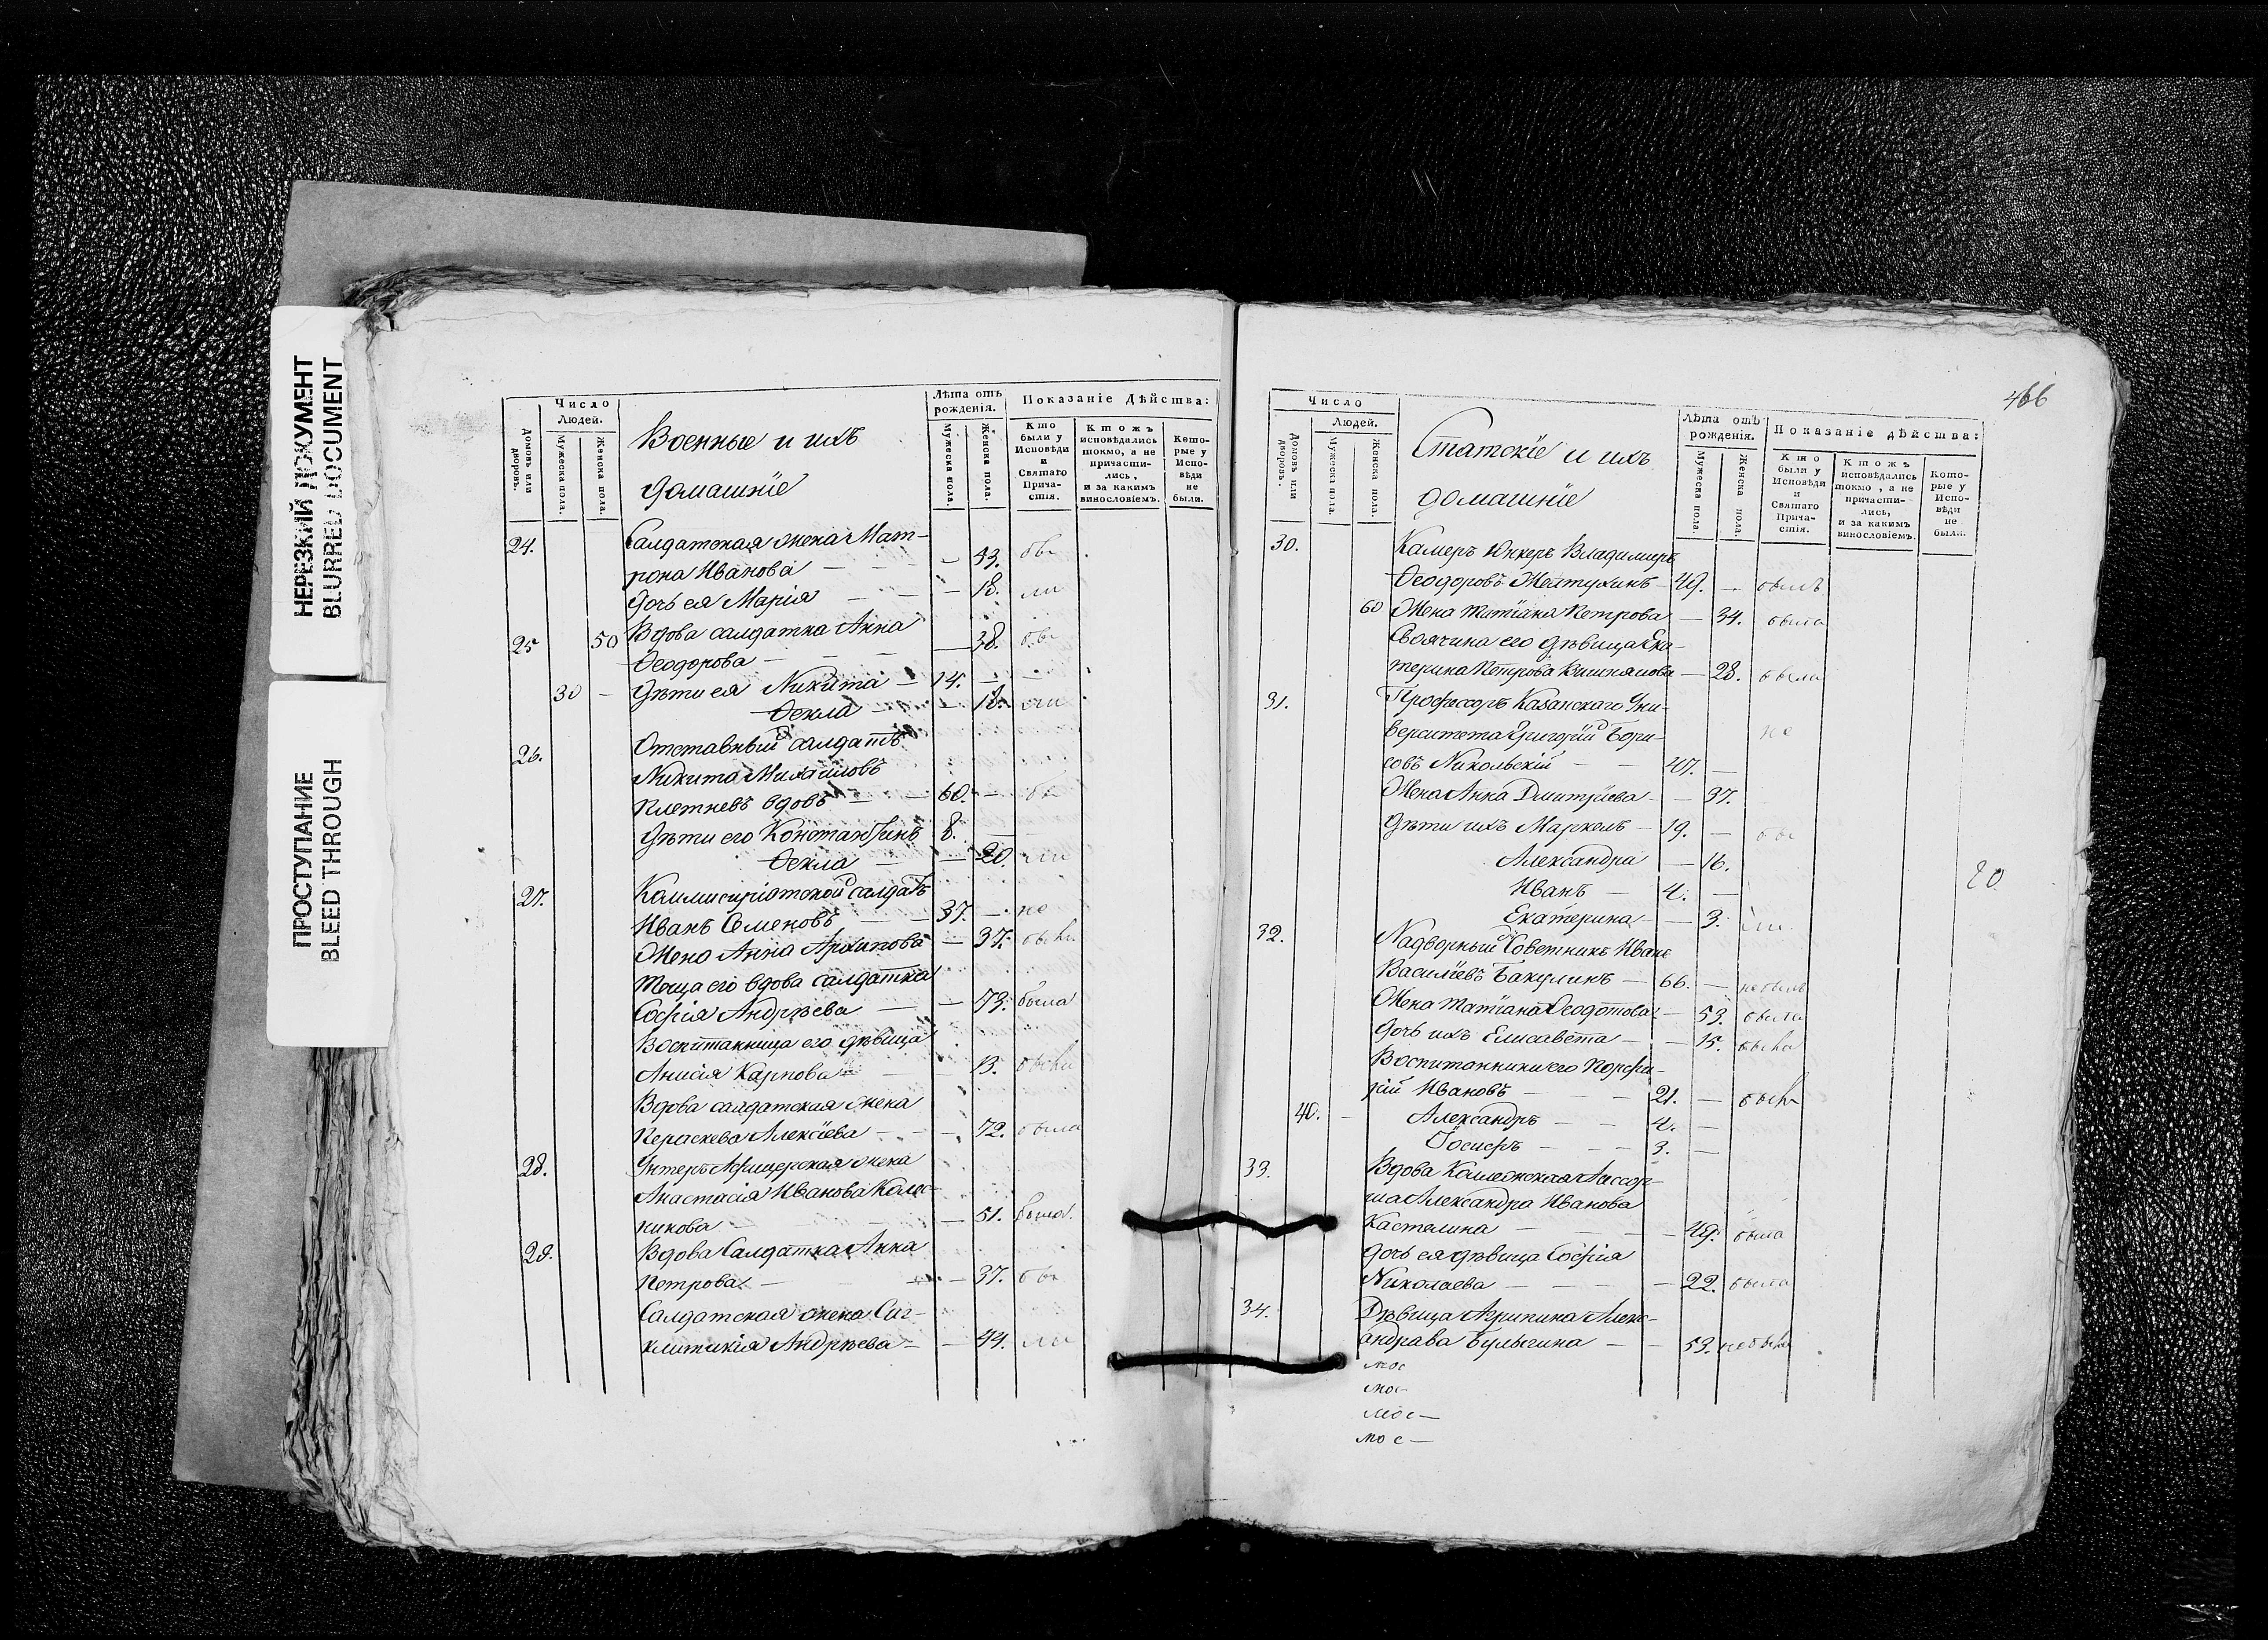 НЕРЕЗКИЙ ДОКУМЕНТ
BLURRED DOCUMENT
ПРОСТУПАНИЕ
BLEED THROUGH
Число
Людей.
Домовъ или дворовъ.
Мужеска пола.
Женска пола.
Военные и ихъ
домашніе
Лѣта отъ рожденія.
Мужеска пола.
Женска пола.
Показаніе дѣйства:
Кто были у Исповѣди и Святаго Прича-стія.
Ктожъ исповѣдались токмо, а не причасти-лись, и за какимъ винословіемъ.
Кото-рые у Испо-вѣди не были.
24. Салдатская жена Мат-
рона Иванова — 43. бы
Дочь ея Марія — 18. ли
25 50 Вдова салдатка Анна
Ѳеодорова — 38. бы
30 — Дѣти ея Никита — 14. —
Ѳекла — 18. ли
26. Отставный салдатъ
Никита Михайловъ
Плетневъ вдовъ — 60. — бы
Дѣти его Константинъ 8. —
Ѳекла — 20. ли
27. Коммисаріатской салдатъ
Иванъ Семеновъ — 37. — не
Жена Анна Архипова — 37. были
Теща его вдова салдатка
Софія Андрѣева — 73. была
Воспитанница его дѣвица
Анисія Карпова — 13. были
Вдова салдатская жена
Параскева Алексіева — 72. была
28. Унтеръ Афицерская жена
Анастасія Иванова Колес-
никова — 51. была.
29. Вдова Салдатка Анна
Петрова — 37. бы
Салдатская жена Син-
клитикія Андрѣева — 44. ли
466
Число
Людей.
Домовъ или дворовъ.
Мужеска пола.
Женска пола.
Статскіе и ихъ
домашніе
Лѣта отъ рожденія.
Мужеска пола.
Женска пола.
Показаніе дѣйства:
Кто были у Исповѣди и Святаго Прича-стія.
Ктожъ исповѣдались токмо, а не причасти-лись, и за какимъ винословіемъ.
Кото-рые у Испо-вѣди не были.
30. Камеръ Юнкеръ Владимиръ
Ѳеодоровъ Желтухинъ — 49. — былъ
60 Жена Татіана Петрова — 34. была
Своячина его дѣвица Ека-
терина Петрова — 28. была
31. Професоръ Казанскаго Уни-
верситета Григорій Бори- не
совъ Никольскій — 47. —
Жена Анна Дмитріева — 37.
Дѣти ихъ Маркелъ — 19. — бы
Александра — 16.
Иванъ — 4. —
20
Екатерина — 3. ли
32. Надворный Совѣтникъ Иванъ
Василіевъ Бакулинъ — 66. — не былъ
Жена Татіана Ѳеодотова — 53. была
Дочь ихъ Елисавета — 15. была
Воспитанники его Порфи-
рій Ивановъ — 21. — былъ
40. — Александръ — 4. —
Іосифъ — 3. —
33. Вдова Коллежская Ассор-
ша Александра Иванова
Кастелина — 49. была
Дочь ея дѣвица Софія
Николаева — 22. была
34. Дѣвица Агрипина Алекс-
андрава Булыгина — 53. не была
мос
мос—
мос—
мос—